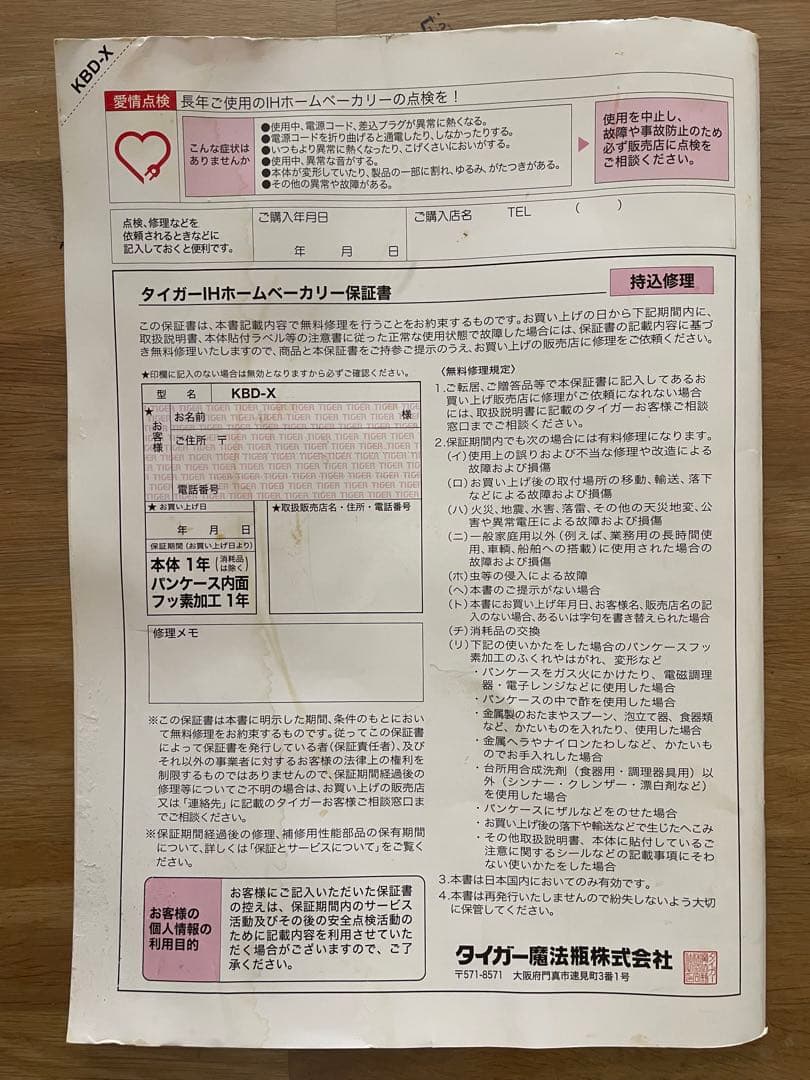 KBD-X
愛情点検 長年ご使用のIHホームベーカリーの点検を！
こんな症状は
ありませんか
●使用中、電源コード、差込プラグが異常に熱くなる。
●電源コードを折り曲げると通電したり、しなかったりする。
●いつもより異常に熱くなったり、こげくさいにおいがする。
●使用中、異常な音がする。
●本体が変形していたり、製品の一部に割れ、ゆるみ、がたつきがある。
●その他の異常や故障がある。
使用を中止し、
故障や事故防止のため
必ず販売店に点検を
ご相談ください。
点検、修理などを
依頼されるときなどに
記入しておくと便利です。
ご購入年月日
年 月 日
ご購入店名 TEL ( )
タイガーIHホームベーカリー保証書
持込修理
この保証書は、本書記載内容で無料修理を行うことをお約束するものです。お買い上げの日から下記期間内に、
取扱説明書、本体貼付ラベル等の注意書に従った正常な使用状態で故障した場合には、保証書の記載内容に基づ
き無料修理いたしますので、商品と本保証書をご持参ご提示のうえ、お買い上げの販売店に修理をご依頼ください。
★印欄に記入のない場合は無効となりますから必ずご確認ください。
型 名 KBD-X
★お客様
お名前 様
ご住所 〒
電話番号
★お買い上げ日
年 月 日
保証期間（お買い上げ日より）
本体 1年（消耗品は除く）
パンケース内面
フッ素加工 1年
★取扱販売店名・住所・電話番号
修理メモ
※この保証書は本書に明示した期間、条件のもとにおい
て無料修理をお約束するものです。従ってこの保証書
によって保証書を発行している者（保証責任者）、及び
それ以外の事業者に対するお客様の法律上の権利を
制限するものではありませんので、保証期間経過後の
修理等についてご不明の場合は、お買い上げの販売店
又は「連絡先」に記載のタイガーお客様ご相談窓口ま
でご相談ください。
※保証期間経過後の修理、補修用性能部品の保有期間
について、詳しくは「保証とサービスについて」をご覧く
ださい。
お客様の
個人情報の
利用目的
お客様にご記入いただいた保証書
の控えは、保証期間内のサービス
活動及びその後の安全点検活動の
ために記載内容を利用させていた
だく場合がございますので、ご了
承ください。
〈無料修理規定〉
1.ご転居、ご贈答品等で本保証書に記入してあるお
買い上げ販売店に修理がご依頼になれない場合
には、取扱説明書に記載のタイガーお客様ご相談
窓口までご相談ください。
2.保証期間内でも次の場合には有料修理になります。
(イ)使用上の誤りおよび不当な修理や改造による
故障および損傷
(ロ)お買い上げ後の取付場所の移動、輸送、落下
などによる故障および損傷
(ハ)火災、地震、水害、落雷、その他の天災地変、公
害や異常電圧による故障および損傷
(ニ)一般家庭用以外（例えば、業務用の長時間使
用、車輌、船舶への搭載）に使用された場合の
故障および損傷
(ホ)虫等の侵入による故障
(ヘ)本書のご提示がない場合
(ト)本書にお買い上げ年月日、お客様名、販売店名の記
入のない場合、あるいは字句を書き替えられた場合
(チ)消耗品の交換
(リ)下記の使いかたをした場合のパンケースフッ
素加工のふくれやはがれ、変形など
・パンケースをガス火にかけたり、電磁調理
器・電子レンジなどに使用した場合
・パンケースの中で酢を使用した場合
・金属製のおたまやスプーン、泡立て器、食器類
など、かたいものを入れたり、使用した場合
・金属ヘラやナイロンたわしなど、かたいもの
でお手入れした場合
・台所用合成洗剤（食器用・調理器具用）以
外（シンナー・クレンザー・漂白剤など）
を使用した場合
・パンケースにザルなどをのせた場合
・お買い上げ後の落下や輸送などで生じたへこみ
・その他取扱説明書、本体に貼付しているご
注意に関するシールなどの記載事項にそわ
ない使いかたをした場合
3.本書は日本国内においてのみ有効です。
4.本書は再発行いたしませんので紛失しないよう大切
に保管してください。
タイガー魔法瓶株式会社
〒571-8571 大阪府門真市速見町3番1号